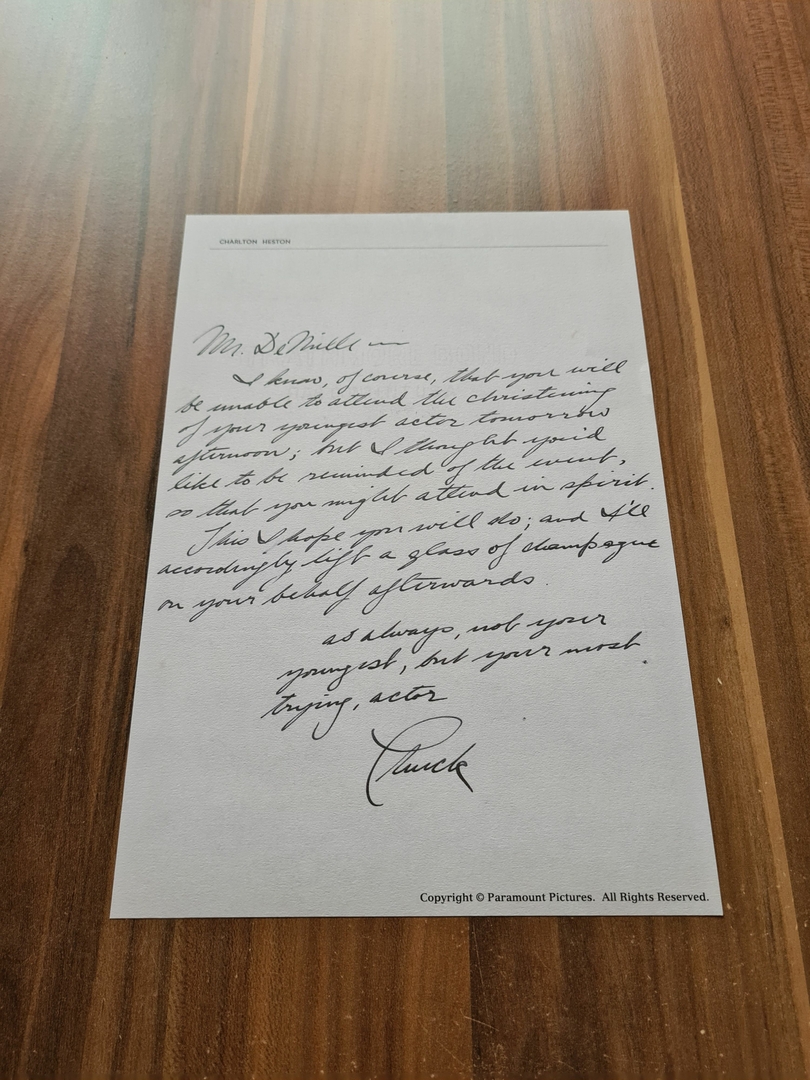 CHARLTON HESTON
Mr. DeMille —
I know, of course, that you will
be unable to attend the christening
of your youngest actor tomorrow
afternoon; but I thought you'd
like to be reminded of the event,
so that you might attend in spirit.
This I hope you will do; and I'll
accordingly lift a glass of champagne
on your behalf afterwards.
as always, not your
youngest, but your most
trying, actor
Chuck
Copyright © Paramount Pictures. All Rights Reserved.